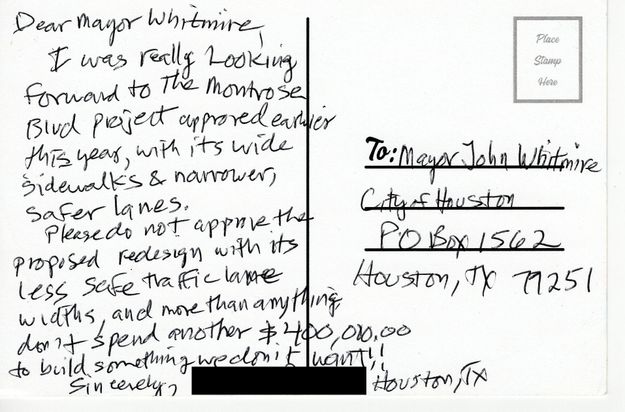 Dear Mayor Whitmire,
I was really Looking
Forward to The Montrose
Blvd Project approved earlier
this year, with its wide
sidewalks & narrower,
safer lanes.
Please do not approve the
proposed redesign with its
less safe traffic lane
widths, and more than anything
don't spend another $400,000.00
to build something we don't want!!
Sincerely,
Houston, TX
Place
Stamp
Here
To: Mayor John Whitmire
City of Houston
PO Box 1562
Houston, TX 77251